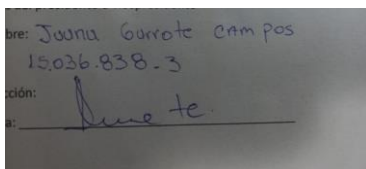 bre: Juana Garrote Campos
15.036.838-3
cción:
a: